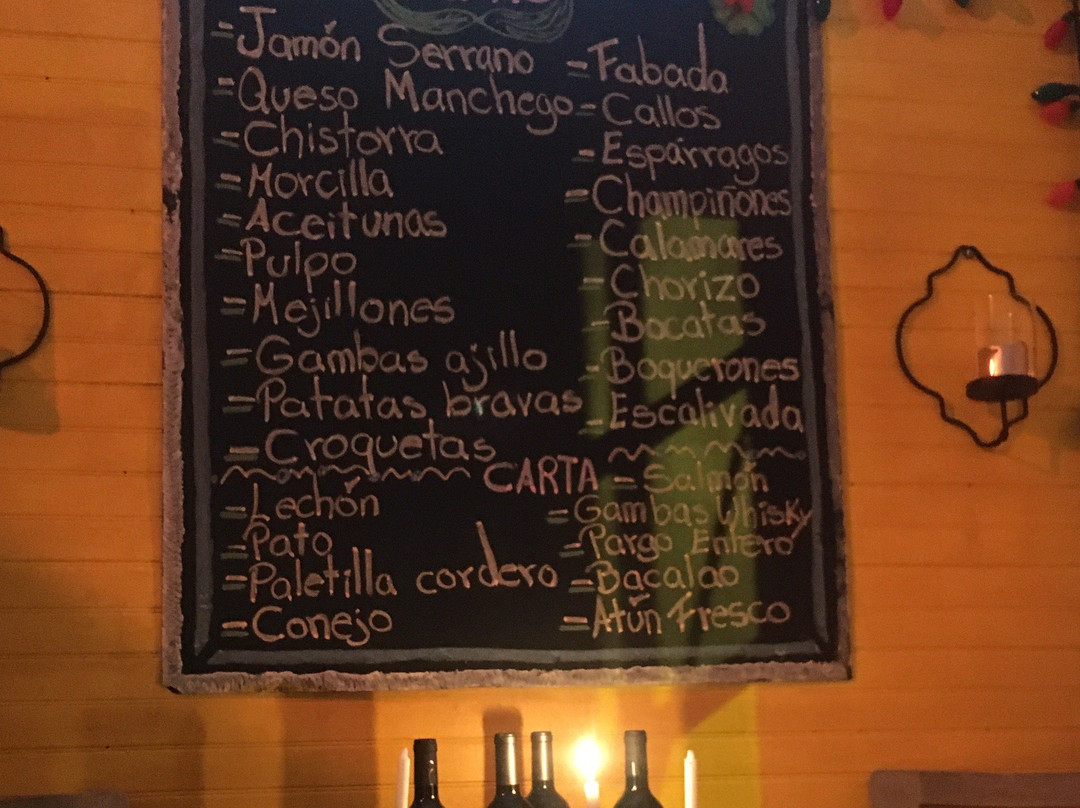 =Jamón Serrano
=Queso Manchego
=Chistorra
=Morcilla
=Aceitunas
=Pulpo
=Mejillones
=Gambas ajillo
=Patatas bravas
=Croquetas
=Fabada
=Callos
=Espárragos
=Champiñones
=Calamares
=Chorizo
=Bocatas
=Boquerones
=Escalivada
CARTA
=Lechón
=Pato
=Paletilla cordero
=Conejo
=Salmón
=Gambas Whisky
=Pargo Entero
=Bacalao
=Atún Fresco